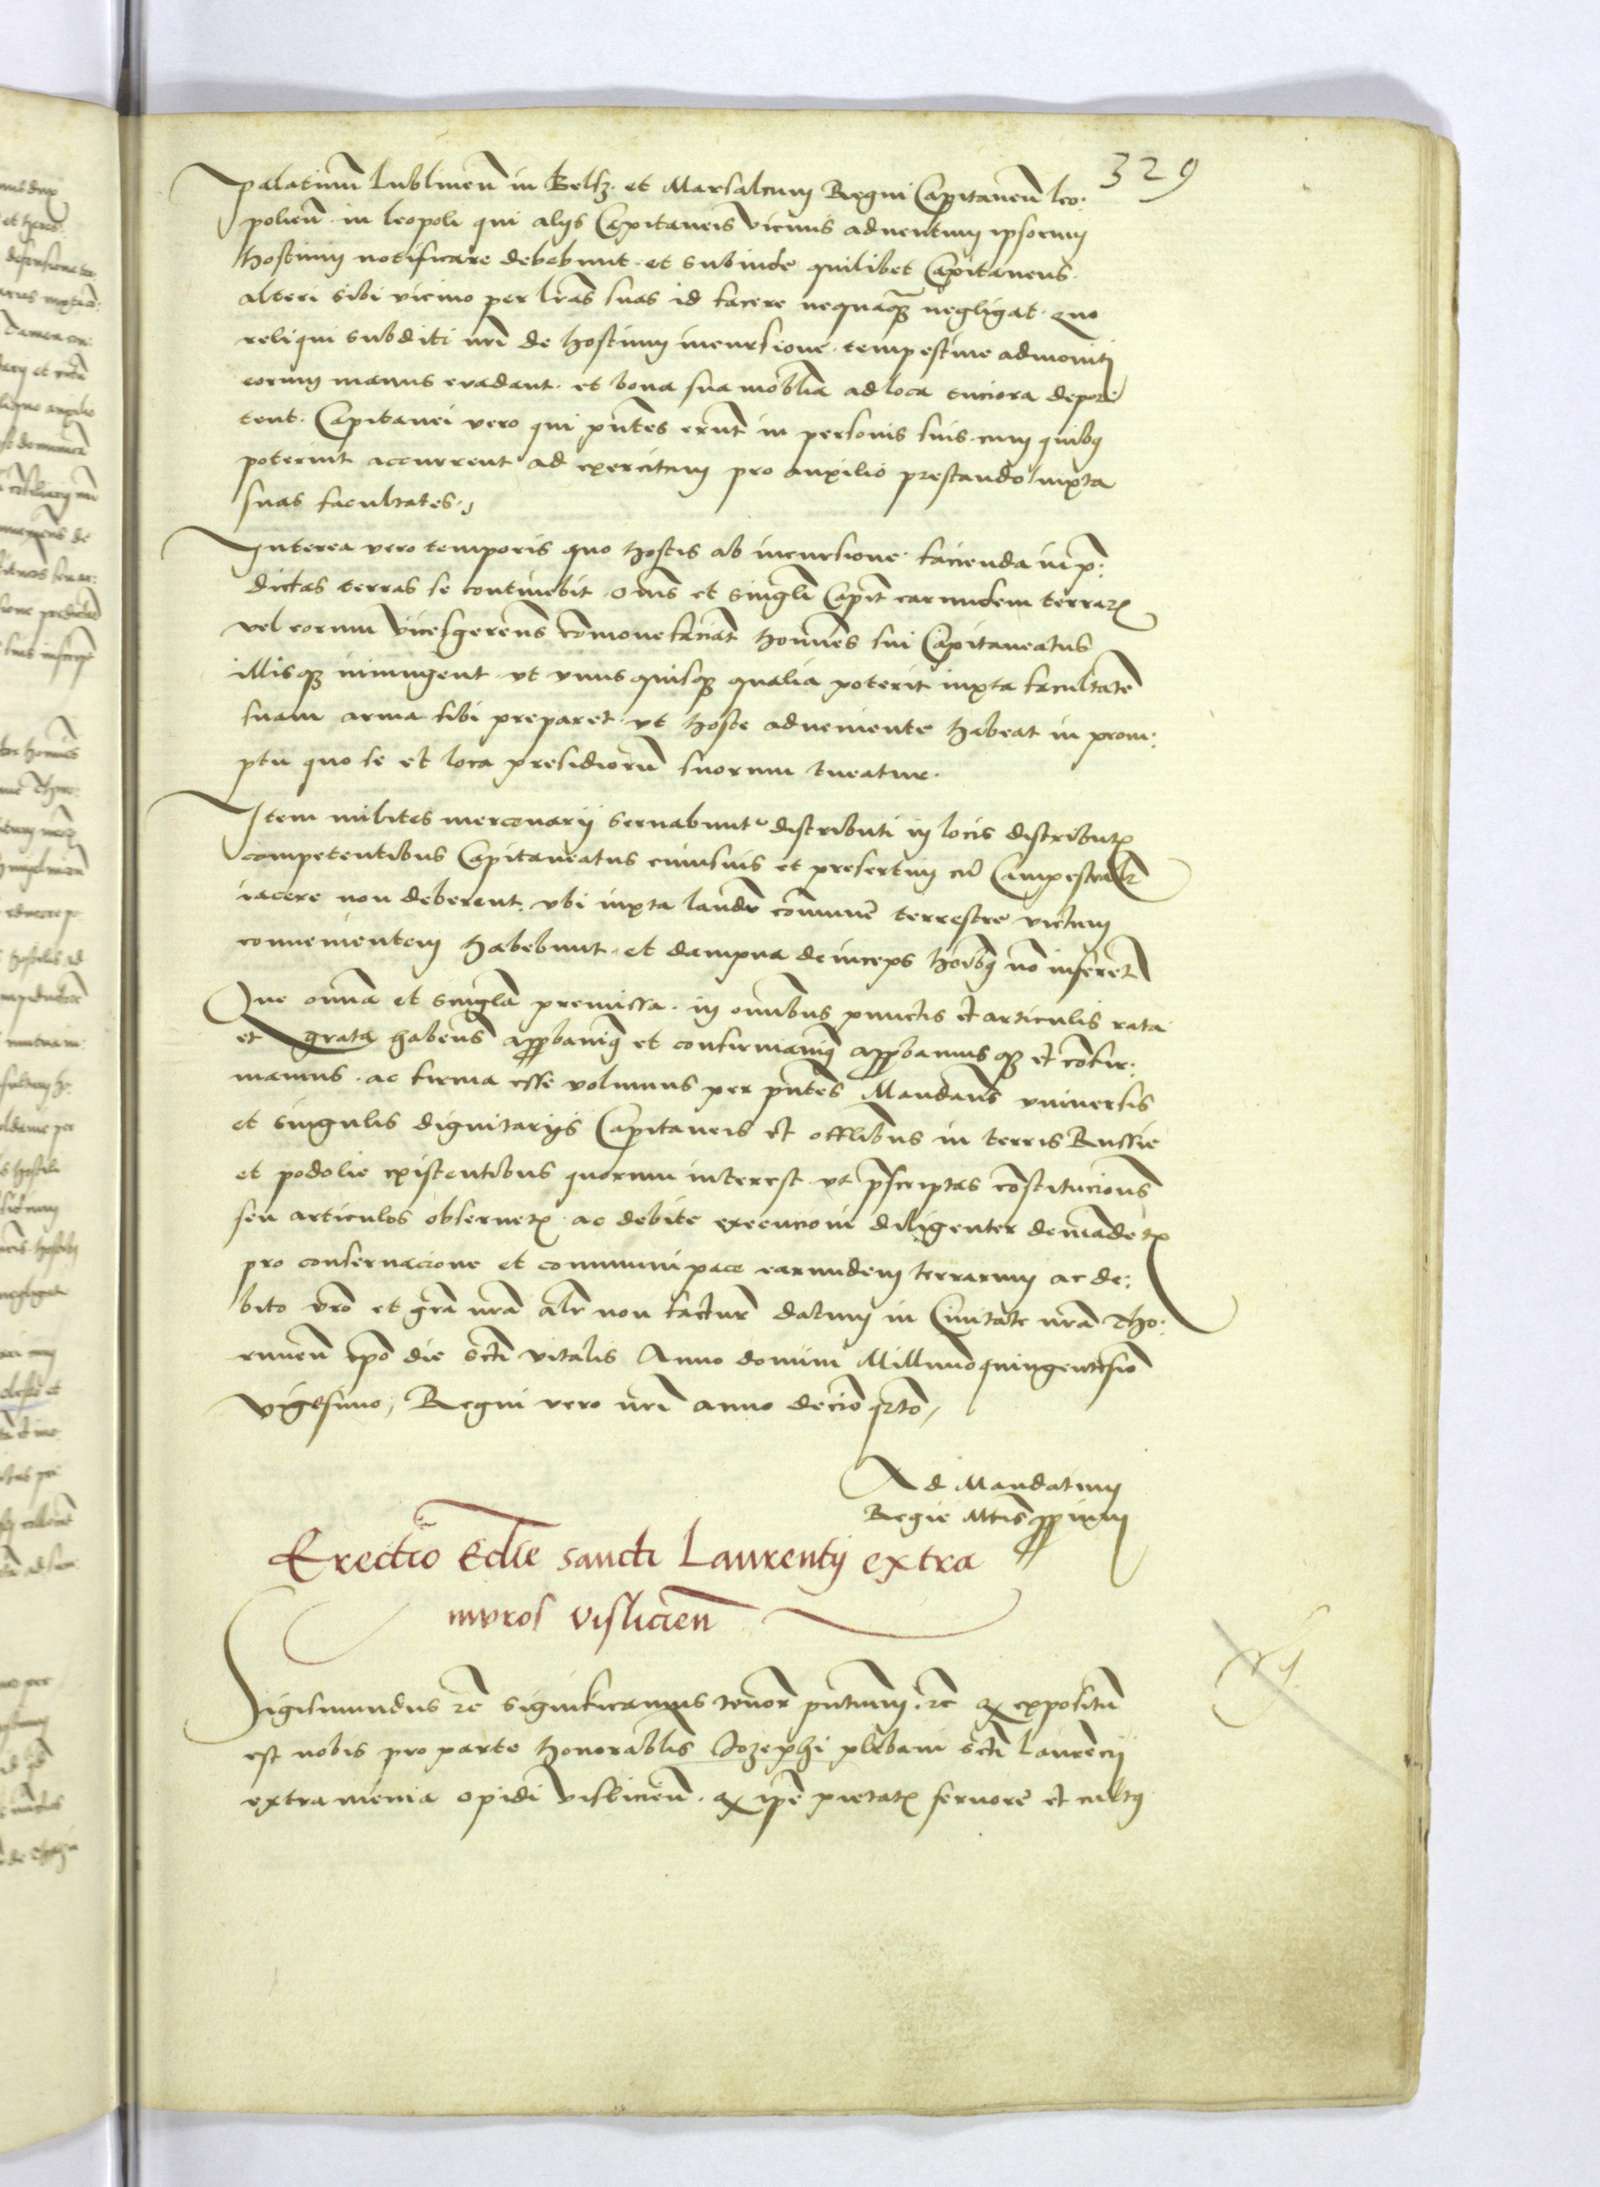 329
palatinum lublinen in Belsz et Marsalcum Regni Capitaneum leo:
polien in leopoli qui alijs Capitaneis vicinis adventum ipsorum
hostium notificare debebunt et subinde quilibet Capitaneus
alteri sibi vicino per lras suas id facere nequaqz negligat quo
reliqui subditi nri de hostium incursione tempestiue admoniti
eorum manus euadant et bona sua moblia ad loca tuciora depor
tent Capitanei vero qui pntes erunt in personis suis cum quibus
poterint accurrent ad exercitum pro auxilio prestando iuxta
suas facultates
Interea vero temporis quo hostis ab incursione facienda in p:
dictas terras se continebit oms et singli Capit earumdem terrar
vel eorum vicesgerens comonefaciat homines sui Capitaneatus
illisqz iniungent vt vnusquisqz qualia poterit iuxta facultate
suam arma sibi preparet vt hoste adueniente habeat in prom:
ptu quo se et loca presidiorum suorum tueatur
Item milites mercenarij seruabunt distributi in locis distribut
competentibus Capitaneatus cuiusuis et presertim cum Campestral
iacere non deberent vbi iuxta laudum comune terrestre victum
conuenientem habebunt et dampna deinceps hoibus no inferent
Que omia et singla premissa in omibus punctis et articulis rata
et grata habens approbauimus et confirmauimus approbamusqz et confir:
mamus ac firma esse volumus per pntes Mandans vniuersis
et singulis dignitarijs Capitaneis et offlibus in terris Russie
et podolie existentibus quorum interest vt pscriptas constitucions
seu articulos obseruet ac debite execucioni diligenter demadet
pro conseruacione et communi pace earumdem terrarum ac de:
bito vro et gra nra alr non factur datum in Ciuitate nra Tho:
runen ipo die scti vitalis Anno domini Millimoquingentesio
vigesimo, Regni vero nri anno decio qrto
Ad Mandatum
Regie Mtis proprium
Erectio Eclie sancti Laurentij extra
muros vislicien
Sigismundus rc significamus tenore pntium rc qz expositum
est nobis pro parte honorablis Iozephi plebani scti laurencij
extra menia opidi vislicien qz ipe pietatis feruore et cultus